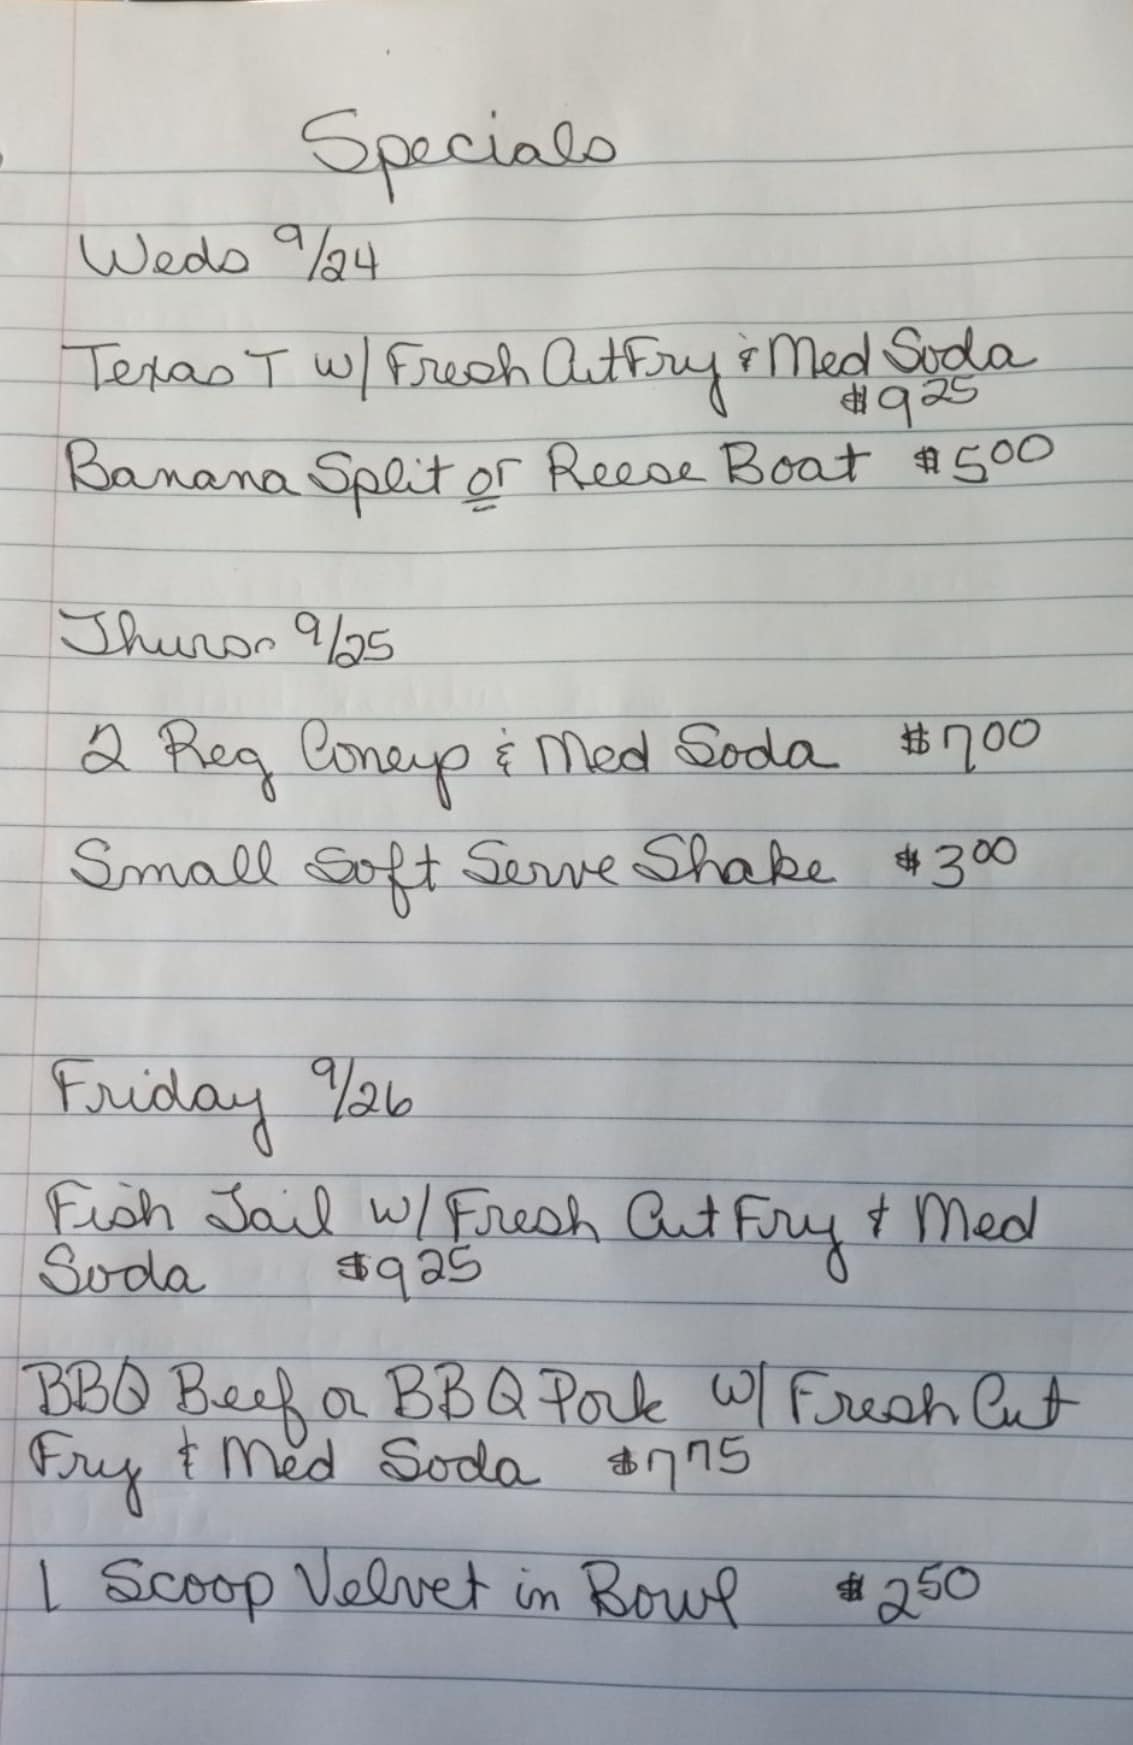 Specials
Weds 9/24
Texas T w/ Fresh Cut Fry & Med Soda
$9.25
Banana Split or Reese Boat $5.00
Thurs. 9/25
2 Reg Coneys & Med Soda $7.00
Small Soft Serve Shake $3.00
Friday 9/26
Fish Tail w/ Fresh Cut Fry & Med
Soda $9.25
BBQ Beef or BBQ Pork w/ Fresh Cut
Fry & Med Soda $7.75
1 Scoop Velvet in Bowl $2.50